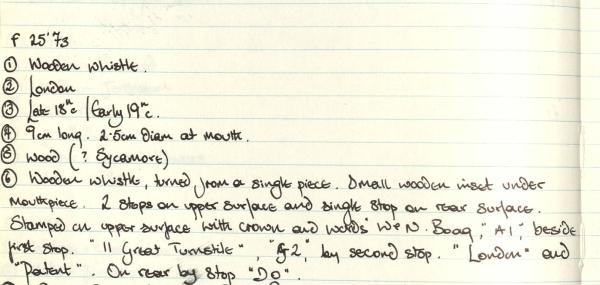 F 25'73
① Wooden whistle.
② London
③ Late 18thc / Early 19thc.
④ 9cm long. 2.5cm Diam at mouth.
⑤ Wood (? Sycamore)
⑥ Wooden whistle, turned from a single piece. Small wooden inset under
mouthpiece. 2 stops on upper surface and single stop on rear surface.
Stamped on upper surface with crown and words "W & N. Boag," "A1," beside
first stop. "11 Great Turnstile", 2", by second stop. "London" and
"Patent". On rear by stop "Do".